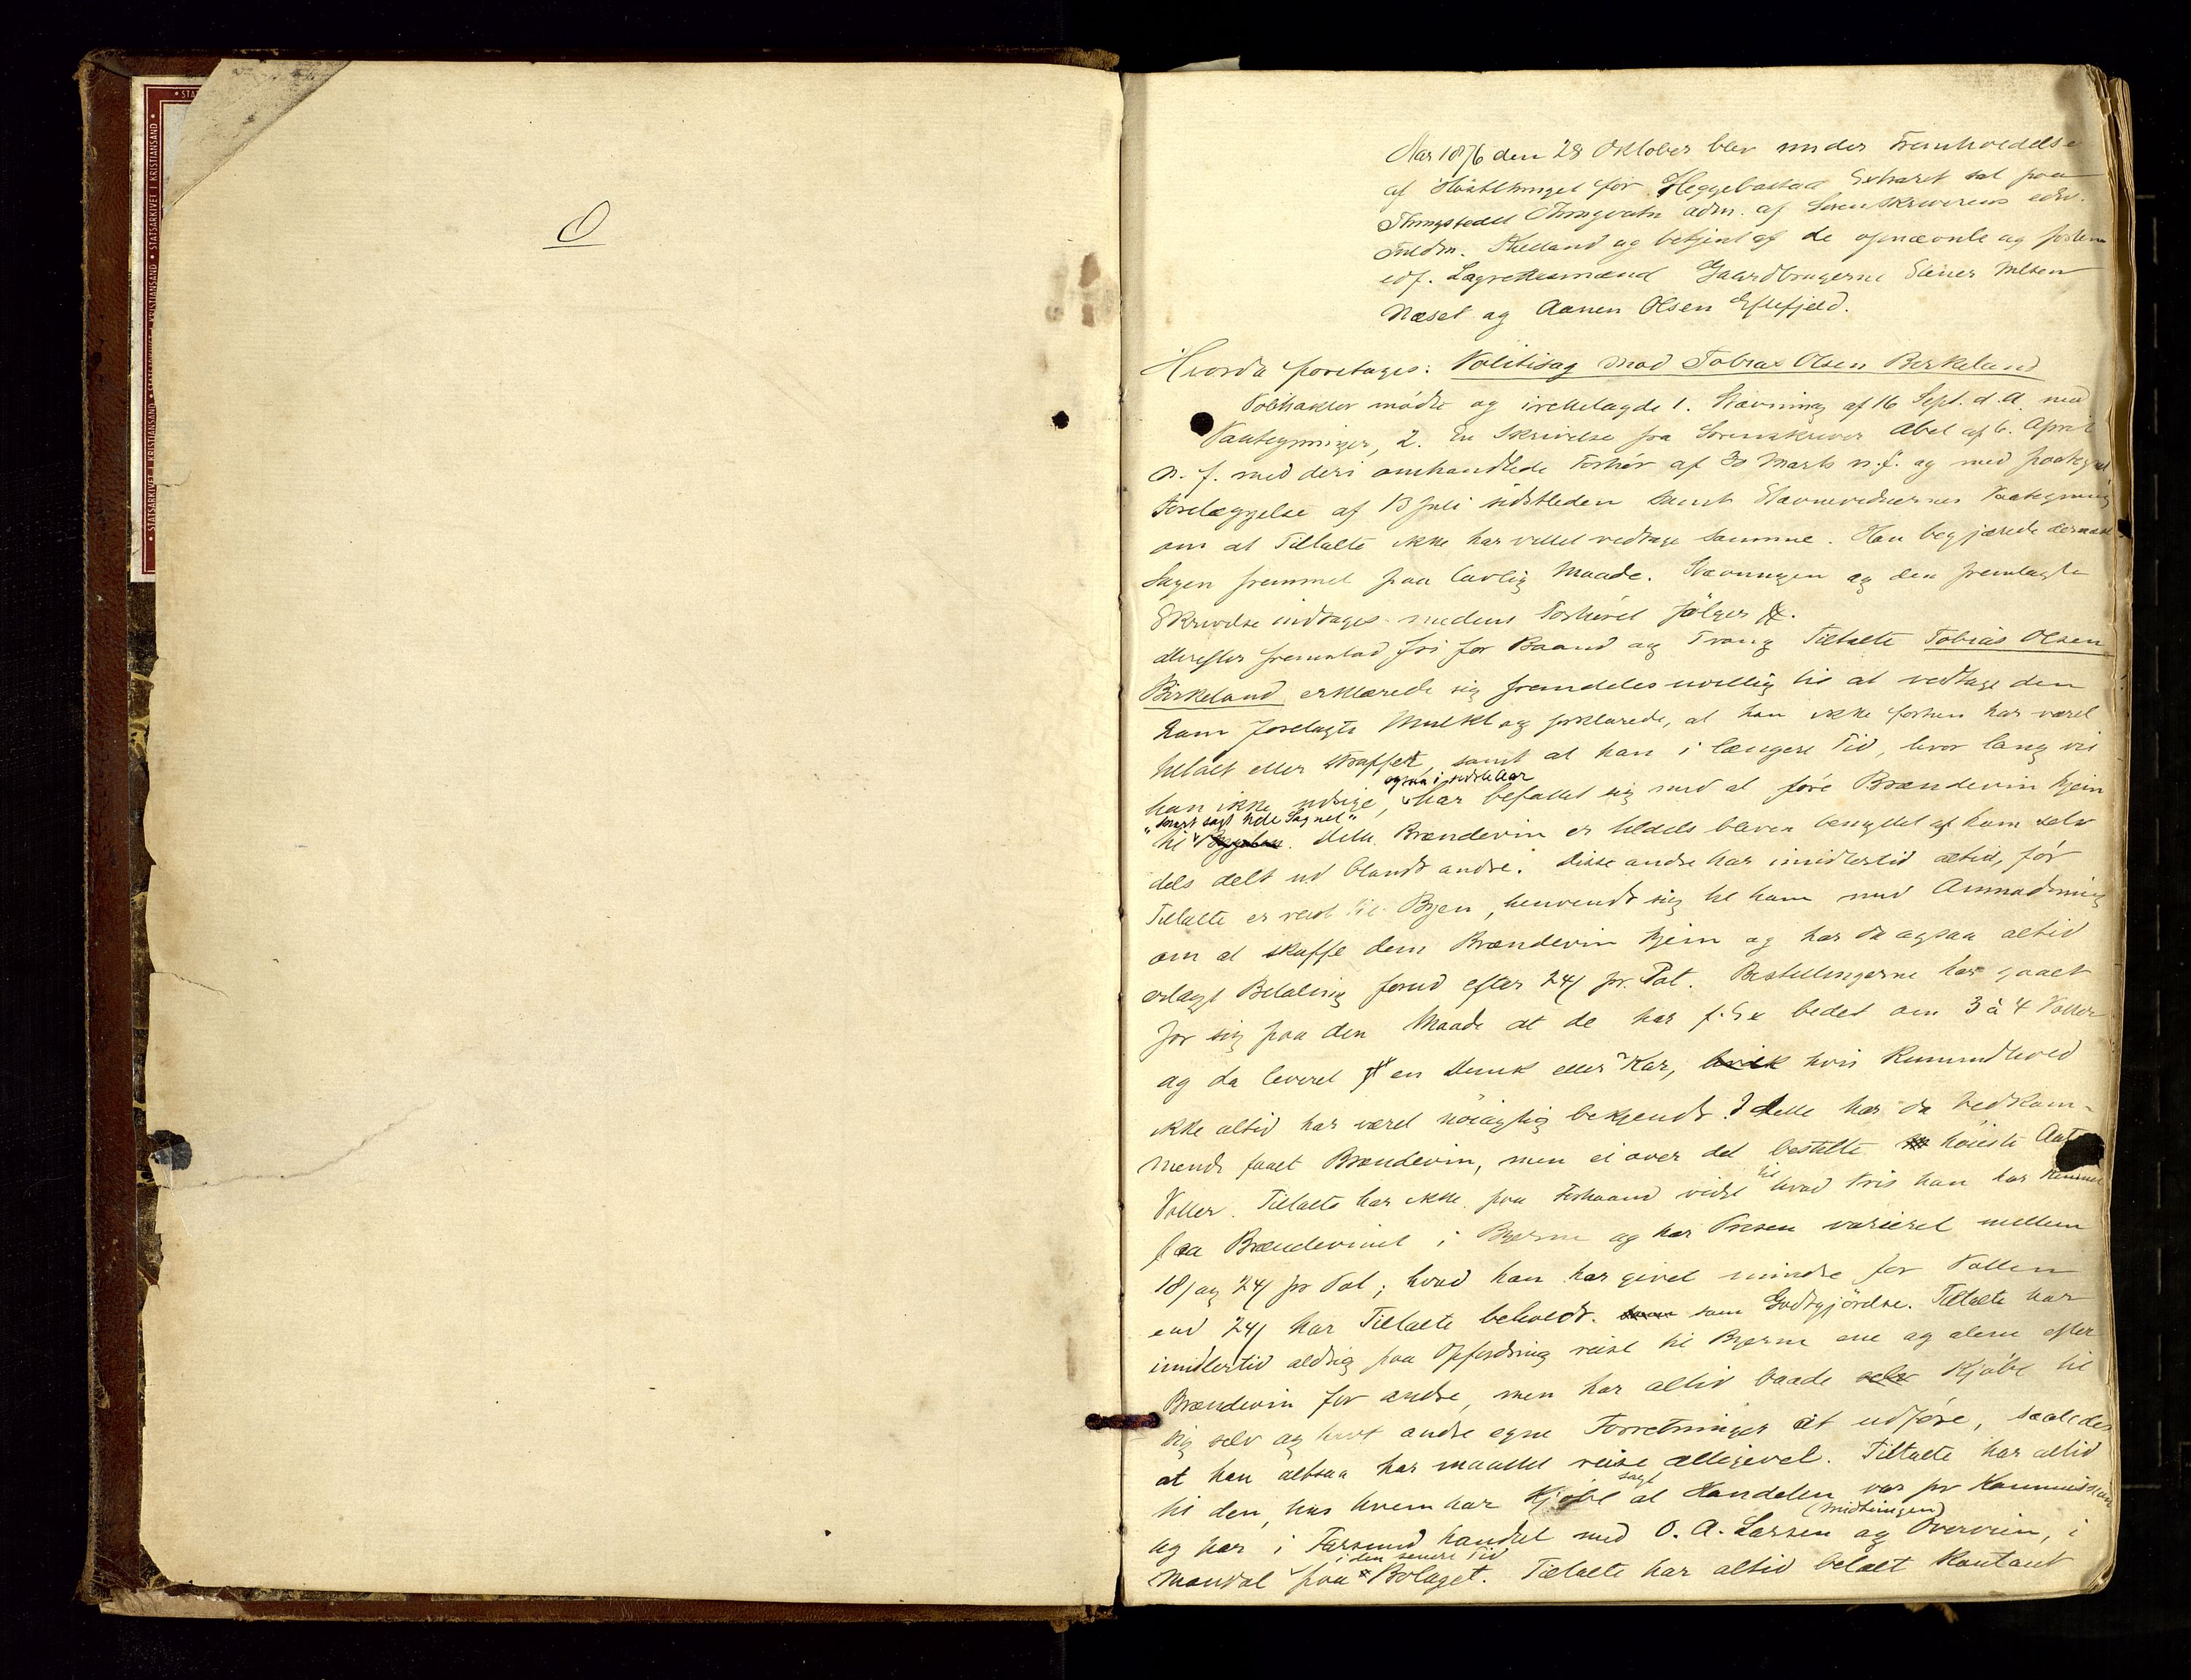 • STATSARKIVET I KRISTIANSAND • STATSARKIVET I KRISTIANSAND •
O
Aar 1876 den 28 Oktober blev under Fremholdelse
af Høstthinget for Heggebostad Extraret sat paa
Thingstedet Thingvatn adm. af Sorenskriverens edsv.
Fuldm. Kielland og betjent af de opnævnte og
edf. Lagrettesmænd Gaardbrugerne Nilsen
Næset og Aanen Olsen Eftefjeld.
Hvorda foretoges: Politisag mod Tobias Olsen Birkeland
Politiaktor mødte og irettelagde 1. Stævning af 16 Sept. d.A. med
Paategninger, 2. En Skrivelse fra Sorenskriver Abel af 6. April
n. f. med deri omhandlede Forhør af 30 Marts n.f. og med paategnet
Forelæggelse af 13 Juli sidstleden samt Stævnevidnernes Paategning
om at Tiltalte ikke har villet vedtage samme. Han begjærede dernæst
Sagen fremmet paa lovlig Maade. Stævningen og den fremlagte
Skrivelse indtages medens Forhøret følger
Derefter fremstod fri for Baand og Tvang Tiltalte Tobias Olsen
Birkeland erklærede sig fremdeles uvillig til at vedtage den
ham forelagte Mulkt og forklarede, at han ikke forhen har været
tiltalt eller straffet, samt at han i længere Tid, hvor lang vil
ogsaa i sidste Aar
han ikke udsige, har befattet sig med at føre Brændevin hjem
"snart sagt hele Sognet"
til Bygden. Dette Brændevin er tildels bleven benyttet af ham selv
dels delt ud blandt andre. Disse andre har imidlertid altid, før
Tiltalte er reist til Byen, henvendt sig til ham med Anmodning
om at skaffe dem Brændevin hjem og har da ogsaa altid
erlagt Betaling forud efter 24/ pr. Pot. Bestillingerne har gaaet
for sig paa den Maade at de har f. Ex bedet om 3 à 4 Potter
og da leveret en Dunk eller Kar, hvis Rummdhold
ikke altid har været nøiagtig bekjendt. I dette har da Vedkom-
mende faaet Brændevin, men ei over det bestilte høieste Antal
Potter. Tiltalte har ikke paa Forhaand vidst til hvad Pris han har kunnet
faa Brændevinet i Byerne og har Prisen varieret mellem
18/ og 24/ pr Pot; hvad han har givet mindre for Potten
end 24/ har Tiltalte beholdt som Godtgjørelse. Tiltalte har
imidlertid aldrig paa Opfordring reist til Byerne ene og alene efter
Brændevin for andre, men har altid baade selv Kjøbt til
sig selv og havt andre egne Forretninger at udføre, saaledes
at han altsaa har maattet reise alligevel. Tiltalte har altid
sagt
til den, hos hvem har Kjøbt at Handelen var pr Kommission
(Midthingen)
og har i Farsund handlet med O. A. Larsen og Overvein, i
i den senere Tid
Mandal paa Bolaget. Tiltalte har altid betalt Kontant